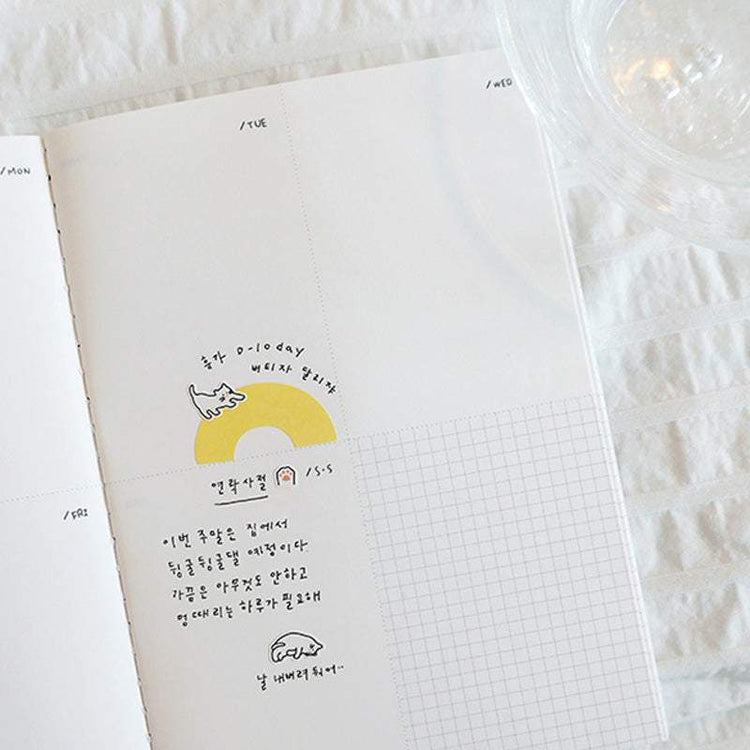 /MON
/TUE
/WED
휴가 D-10day
버티자 달리쟈
/FRI
연락사절
/S·S
이번 주말은 집에서
뒹굴뒹굴댈 예정이다
가끔은 아무것도 안하고
멍때리는 하루가 필요해
날 내버려 둬어..